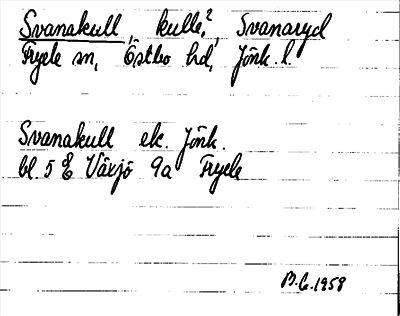 Svanakull, kulle?, Svanaryd
Fryele sn, Östbo hd, Jönk. l.
Svanakull ek. Jönk.
bl. 5 E Växjö 9a Fryele
B.G. 1958